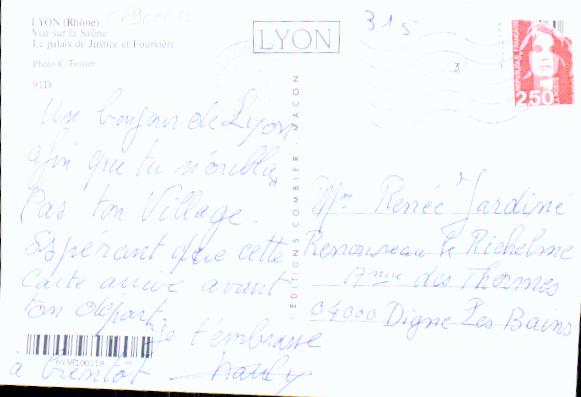 LYON (Rhône)
Vue sur la Saône
Le palais de Justice et Fourvière
Photo C. Foulet
91D
LYON
315
3
2,50
EDITIONS COMBIER - MACON
Un bonjour de Lyon
afin que tu n'oublies
Pas ton Village.
Espérant que cette
Carte arrive avant
ton départ,
je t'embrasse
à bientôt
Mme Renée Jardiné
Le Richelme
des Thermes
04000 Digne Les Bains